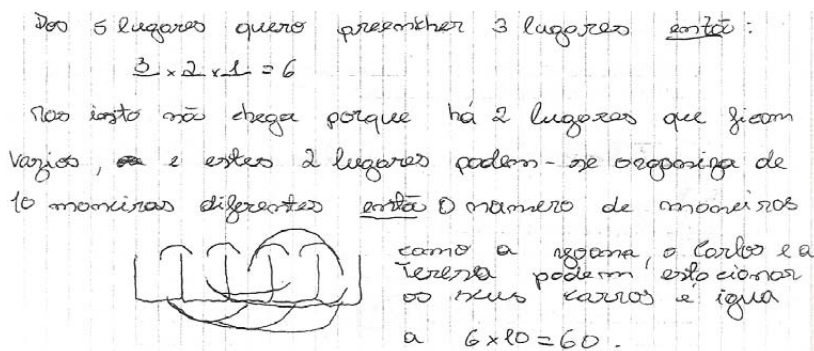 Dos 5 lugares quero preencher 3 lugares então:
3 × 2 × 1 = 6
Mas isto não chega porque há 2 lugares que ficam
vazios, e estes 2 lugares podem-se organiza de
10 maneiras diferentes então o numero de maneiras
como a Joana, o Carlos e a
Teresa podem estacionar
os seus carros é igua
a 6×10=60.